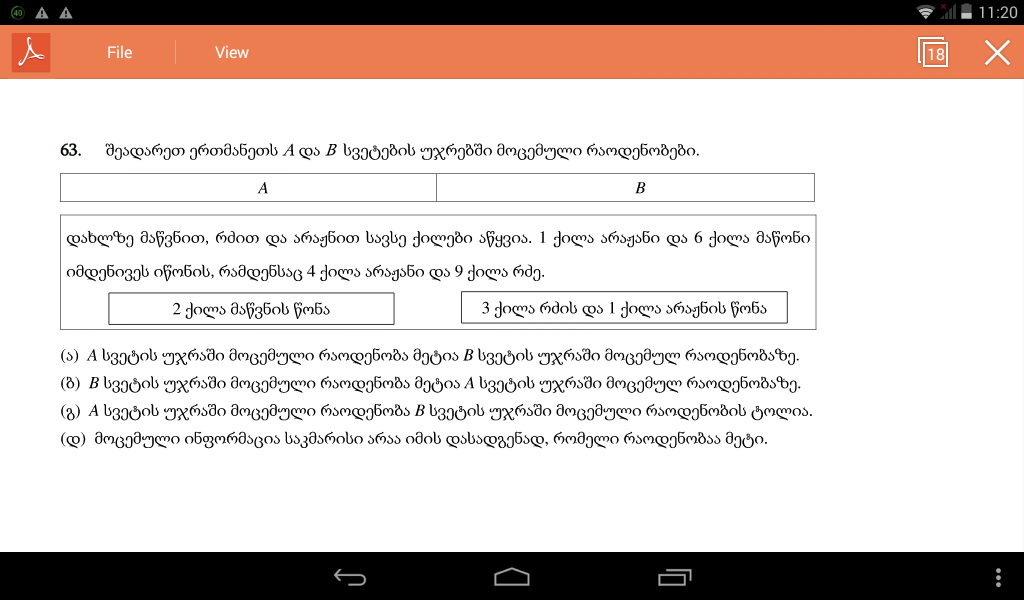 40 11:20
File View 18
63. შეადარეთ ერთმანეთს A და B სვეტების უჯრებში მოცემული რაოდენობები.
A B
დახლზე მაწვნით, რძით და არაჟნით სავსე ქილები აწყვია. 1 ქილა არაჟანი და 6 ქილა მაწონი
იმდენივეს იწონის, რამდენსაც 4 ქილა არაჟანი და 9 ქილა რძე.
2 ქილა მაწვნის წონა 3 ქილა რძის და 1 ქილა არაჟნის წონა
(ა) A სვეტის უჯრაში მოცემული რაოდენობა მეტია B სვეტის უჯრაში მოცემულ რაოდენობაზე.
(ბ) B სვეტის უჯრაში მოცემული რაოდენობა მეტია A სვეტის უჯრაში მოცემულ რაოდენობაზე.
(გ) A სვეტის უჯრაში მოცემული რაოდენობა B სვეტის უჯრაში მოცემული რაოდენობის ტოლია.
(დ) მოცემული ინფორმაცია საკმარისი არაა იმის დასადგენად, რომელი რაოდენობაა მეტი.